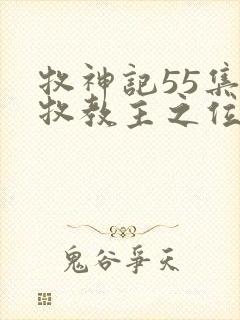 牧神記55集
牧教主之位
鬼谷爭天